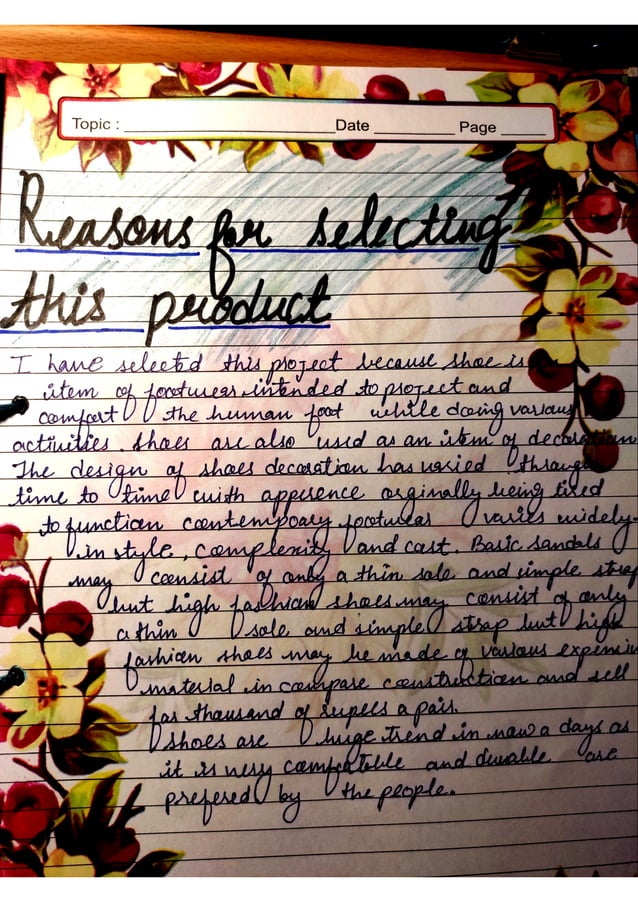 Topic : Date Page
Reasons for selecting
this product
I have selected this project because shoe is
item of footwear intended to project and
comfort the human foot while doing various
activities. shoes are also used as an item of decoration
The design of shoes decoration has varied through
time to time with apperence orginally being tied
to function contempoary footwear varies widely
in style, complexity and cost. Basic sandals
may consist of only a thin sole and simple strap
but high fashion shoes may consist of only
a thin sole and simple strap but high
fashion shoes may be made of various expensiv
material in compare construction and sell
for thousand of rupees a pair.
shoes are huge trend in now a days as
it is very comfortable and durable are
prefered by the people.